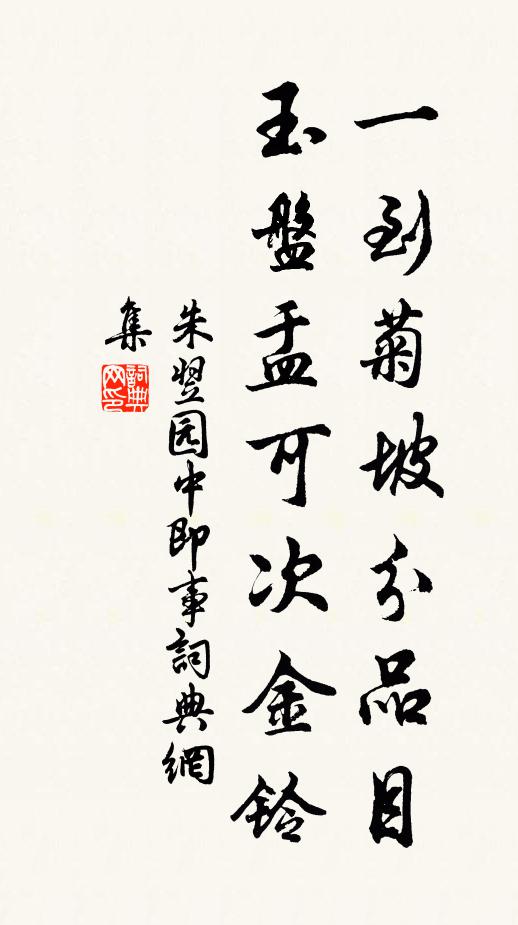 一到菊坡分品目
玉盤盂可次金鈴
朱翌园中即事詞典網
集
詞典
网印